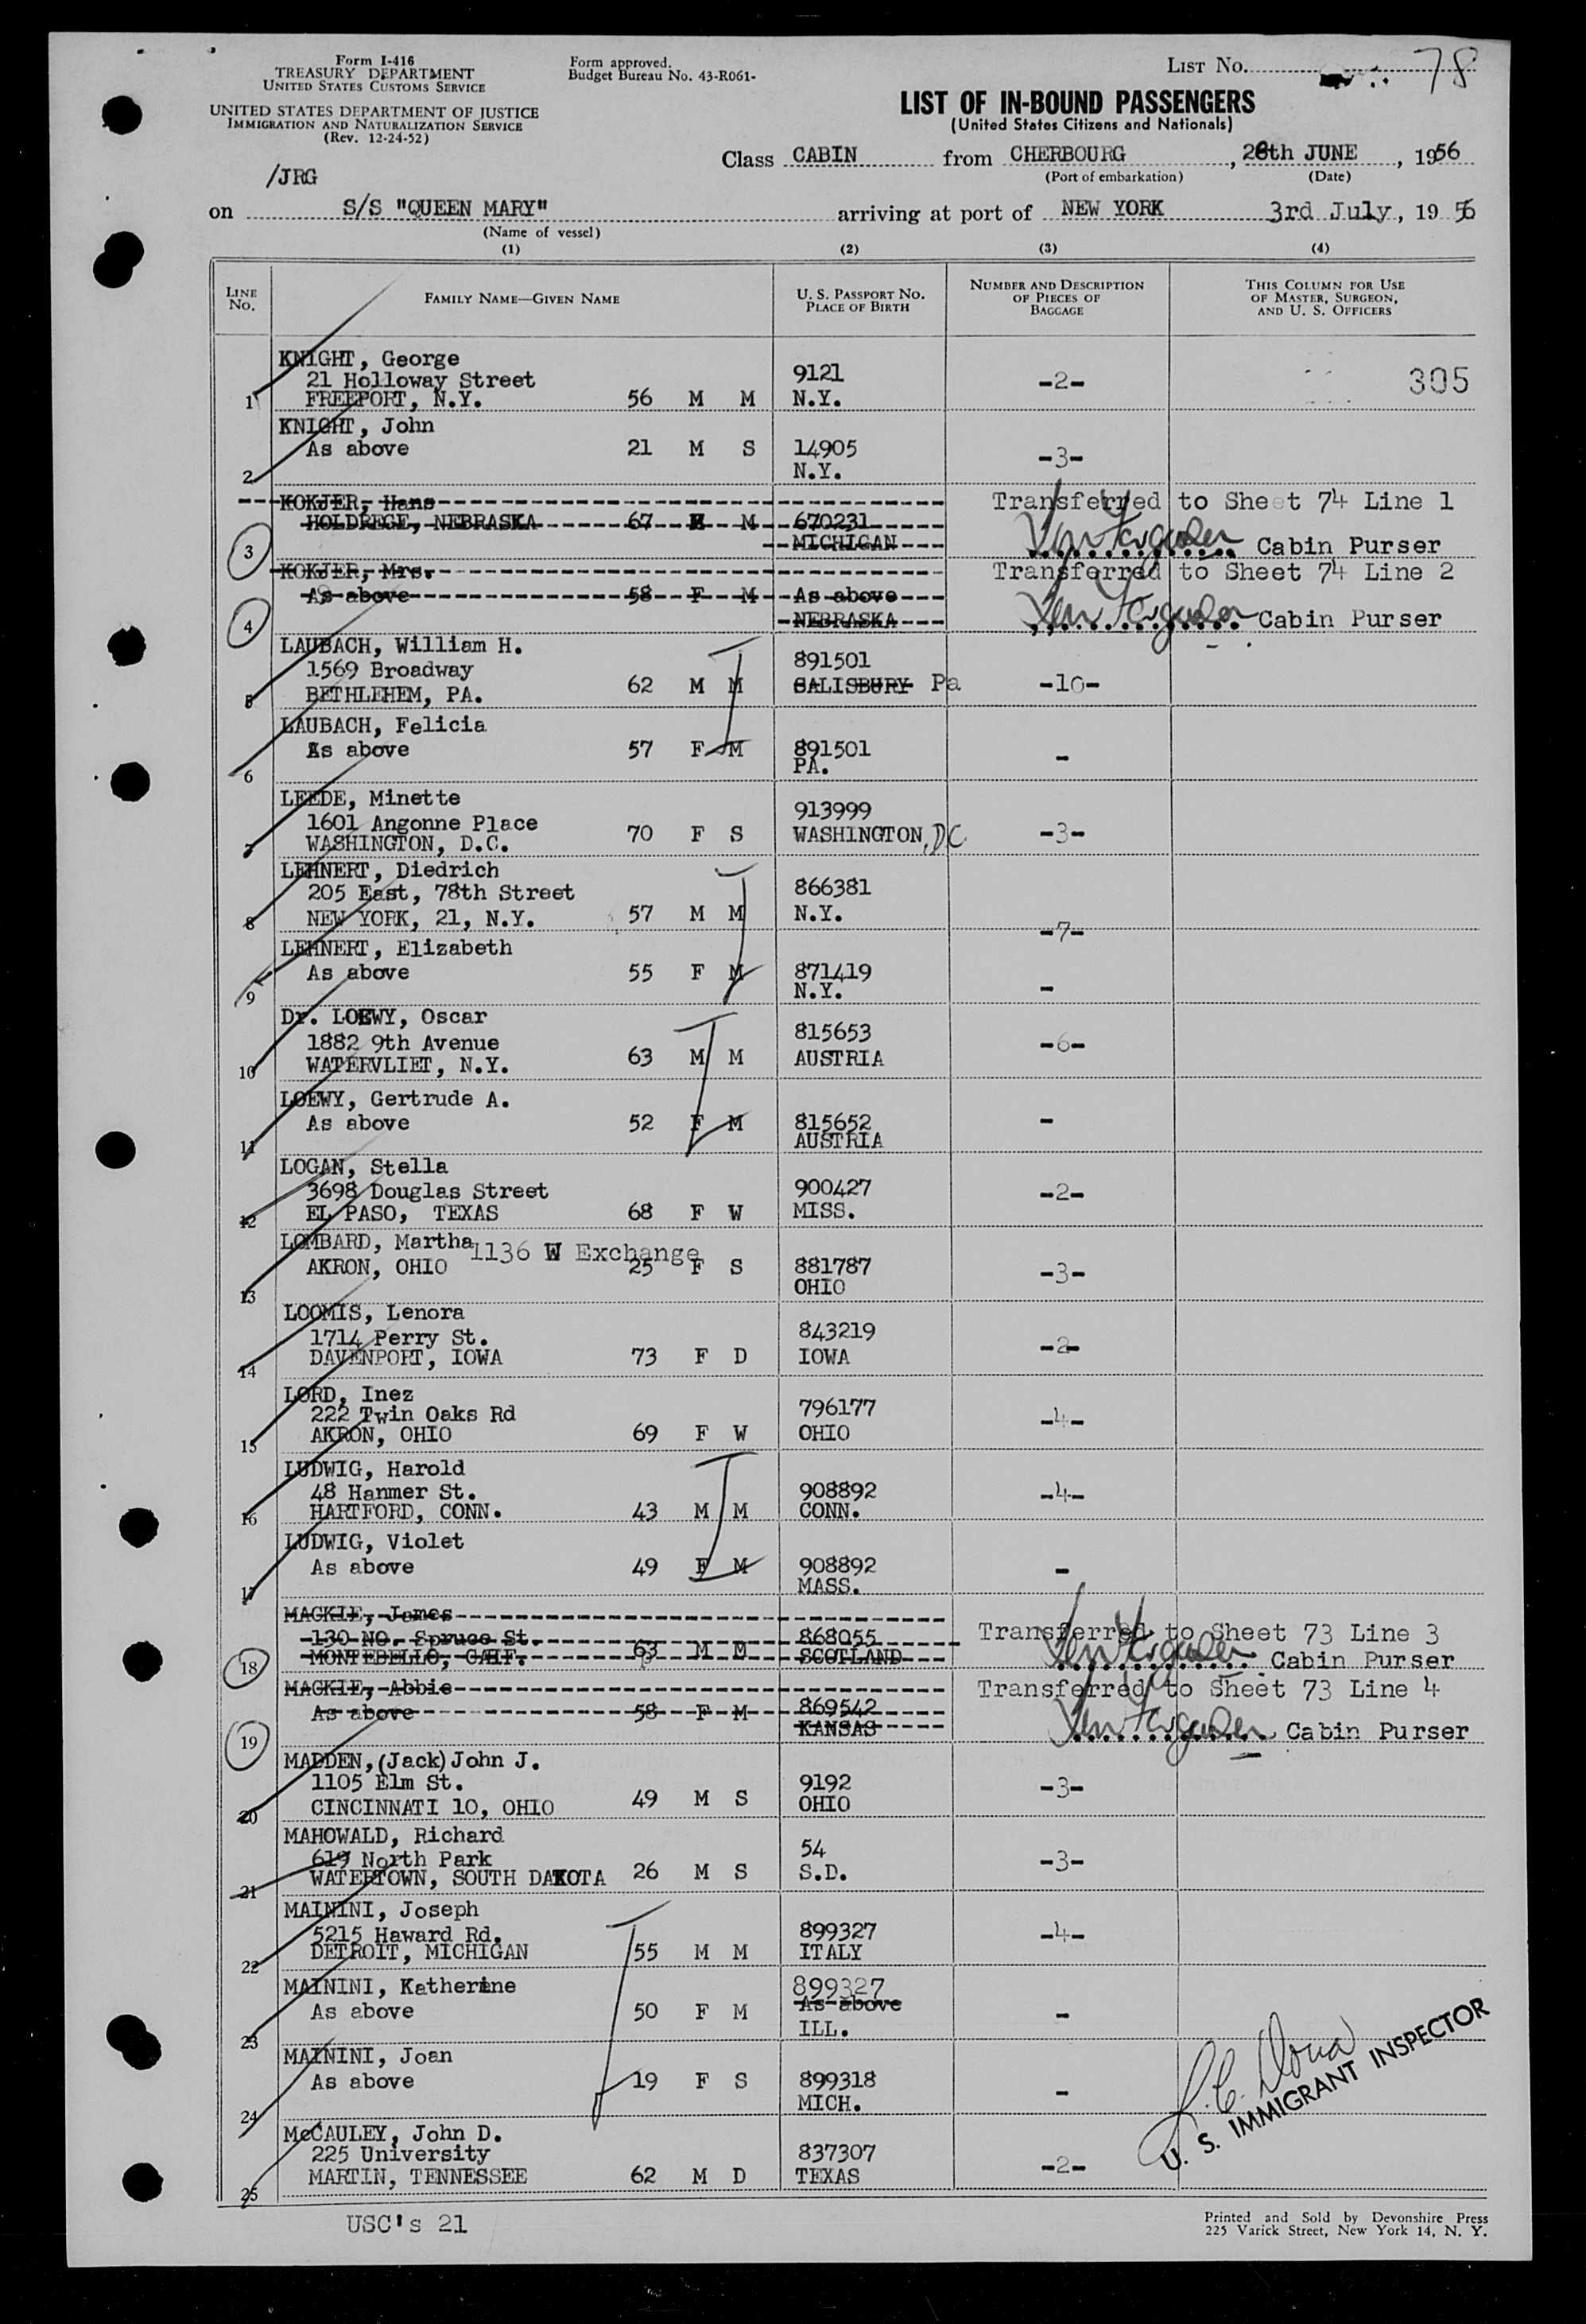 Form I-416
TREASURY DEPARTMENT
UNITED STATES CUSTOMS SERVICE
UNITED STATES DEPARTMENT OF JUSTICE
IMMIGRATION AND NATURALIZATION SERVICE
(Rev. 12-24-52)
Form approved.
Budget Bureau No. 43-R061-
LIST NO. 78
LIST OF IN-BOUND PASSENGERS
(United States Citizens and Nationals)
Class CABIN from CHERBOURG, 28th JUNE, 1956
(Port of embarkation) (Date)
/JRG
on S/S "QUEEN MARY" arriving at port of NEW YORK 3rd July, 1956
(Name of vessel)
(1) (2) (3) (4)
LINE No. FAMILY NAME—GIVEN NAME U. S. PASSPORT NO. PLACE OF BIRTH NUMBER AND DESCRIPTION OF PIECES OF BAGGAGE THIS COLUMN FOR USE OF MASTER, SURGEON, AND U. S. OFFICERS
KNIGHT, George
21 Holloway Street 9121 -2- 305
1 FREEPORT, N.Y. 56 M M N.Y.
KNIGHT, John
As above 21 M S 14905 -3-
2 N.Y.
KOKJER, Hans Transferred to Sheet 74 Line 1
HOLDREGE, NEBRASKA 67 M M 670231
3 MICHIGAN Cabin Purser
KOKJER, Mrs. Transferred to Sheet 74 Line 2
As above 58 F M As above
4 NEBRASKA Cabin Purser
LAUBACH, William H.
1569 Broadway 891501
5 BETHLEHEM, PA. 62 M M SALISBURY Pa -10-
LAUBACH, Felicia
As above 57 F M 891501 -
6 PA.
LEEDE, Minette
1601 Angonne Place 913999
7 WASHINGTON, D.C. 70 F S WASHINGTON, DC -3-
LEHNERT, Diedrich
205 East, 78th Street 866381
8 NEW YORK, 21, N.Y. 57 M M N.Y. -7-
LEHNERT, Elizabeth
As above 55 F M 871419 -
9 N.Y.
Dr. LOEWY, Oscar
1882 9th Avenue 815653 -6-
10 WATERVLIET, N.Y. 63 M M AUSTRIA
LOEWY, Gertrude A.
As above 52 F M 815652 -
11 AUSTRIA
LOGAN, Stella
3698 Douglas Street 900427 -2-
12 EL PASO, TEXAS 68 F W MISS.
LOMBARD, Martha 1136 W Exchange
AKRON, OHIO 25 F S 881787 -3-
13 OHIO
LOOMIS, Lenora
1714 Perry St. 843219 -2-
14 DAVENPORT, IOWA 73 F D IOWA
LORD, Inez
222 Twin Oaks Rd 796177 -4-
15 AKRON, OHIO 69 F W OHIO
LUDWIG, Harold
48 Hanmer St. 908892 -4-
16 HARTFORD, CONN. 43 M M CONN.
LUDWIG, Violet
As above 49 F M 908892 -
17 MASS.
MACKIE, James
130 NO. Spruce St. 868055 Transferred to Sheet 73 Line 3
18 MONTEBELLO, CALIF. 63 M M SCOTLAND Cabin Purser
MACKIE, Abbie Transferred to Sheet 73 Line 4
As above 58 F M 869542
19 KANSAS Cabin Purser
MADDEN, (Jack) John J.
1105 Elm St. 9192 -3-
20 CINCINNATI 10, OHIO 49 M S OHIO
MAHOWALD, Richard
619 North Park 54 -3-
21 WATERTOWN, SOUTH DAKOTA 26 M S S.D.
MAININI, Joseph
5215 Haward Rd. 899327 -4-
22 DETROIT, MICHIGAN 55 M M ITALY
MAININI, Katherine 899327
As above 50 F M As above -
23 ILL.
MAININI, Joan
As above 19 F S 899318 -
24 MICH.
McCAULEY, John D.
225 University 837307
25 MARTIN, TENNESSEE 62 M D TEXAS -2-
U. S. IMMIGRANT INSPECTOR
USC's 21
Printed and Sold by Devonshire Press
225 Varick Street, New York 14, N. Y.